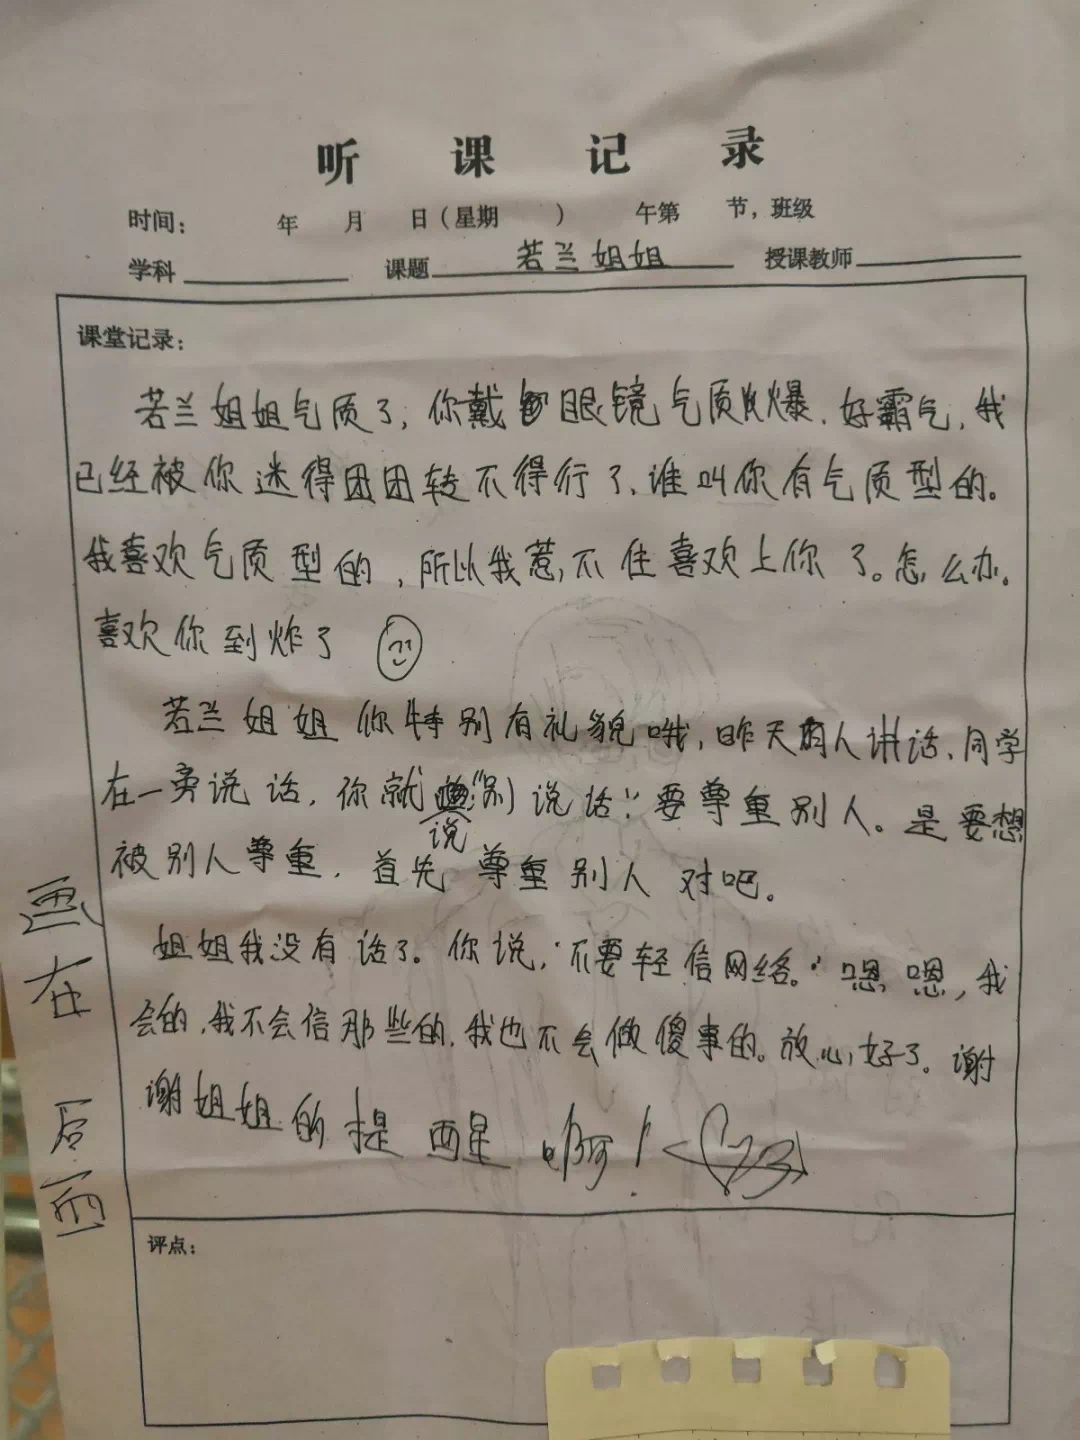 听 课 记 录
时间： 年 月 日（星期 ） 午第 节，班级
学科 课题 若兰姐姐 授课教师
课堂记录：
若兰姐姐气质了，你戴眼镜气质火爆，好霸气，我
已经被你迷得团团转不得行了，谁叫你有气质型的。
我喜欢气质型的，所以我惹不住喜欢上你了。怎么办。
喜欢你到炸了
若兰姐姐你特别有礼貌哦，昨天有人讲话，同学
在一旁说话，你就说“别说话”要尊重别人。是要想
被别人尊重，首先尊重别人对吧。
姐姐我没有话了。你说，“不要轻信网络。”嗯嗯，我
会的，我不会信那些的，我也不会做傻事的。放心好了。谢
谢姐姐的提醒啊！
画在后面
评点：